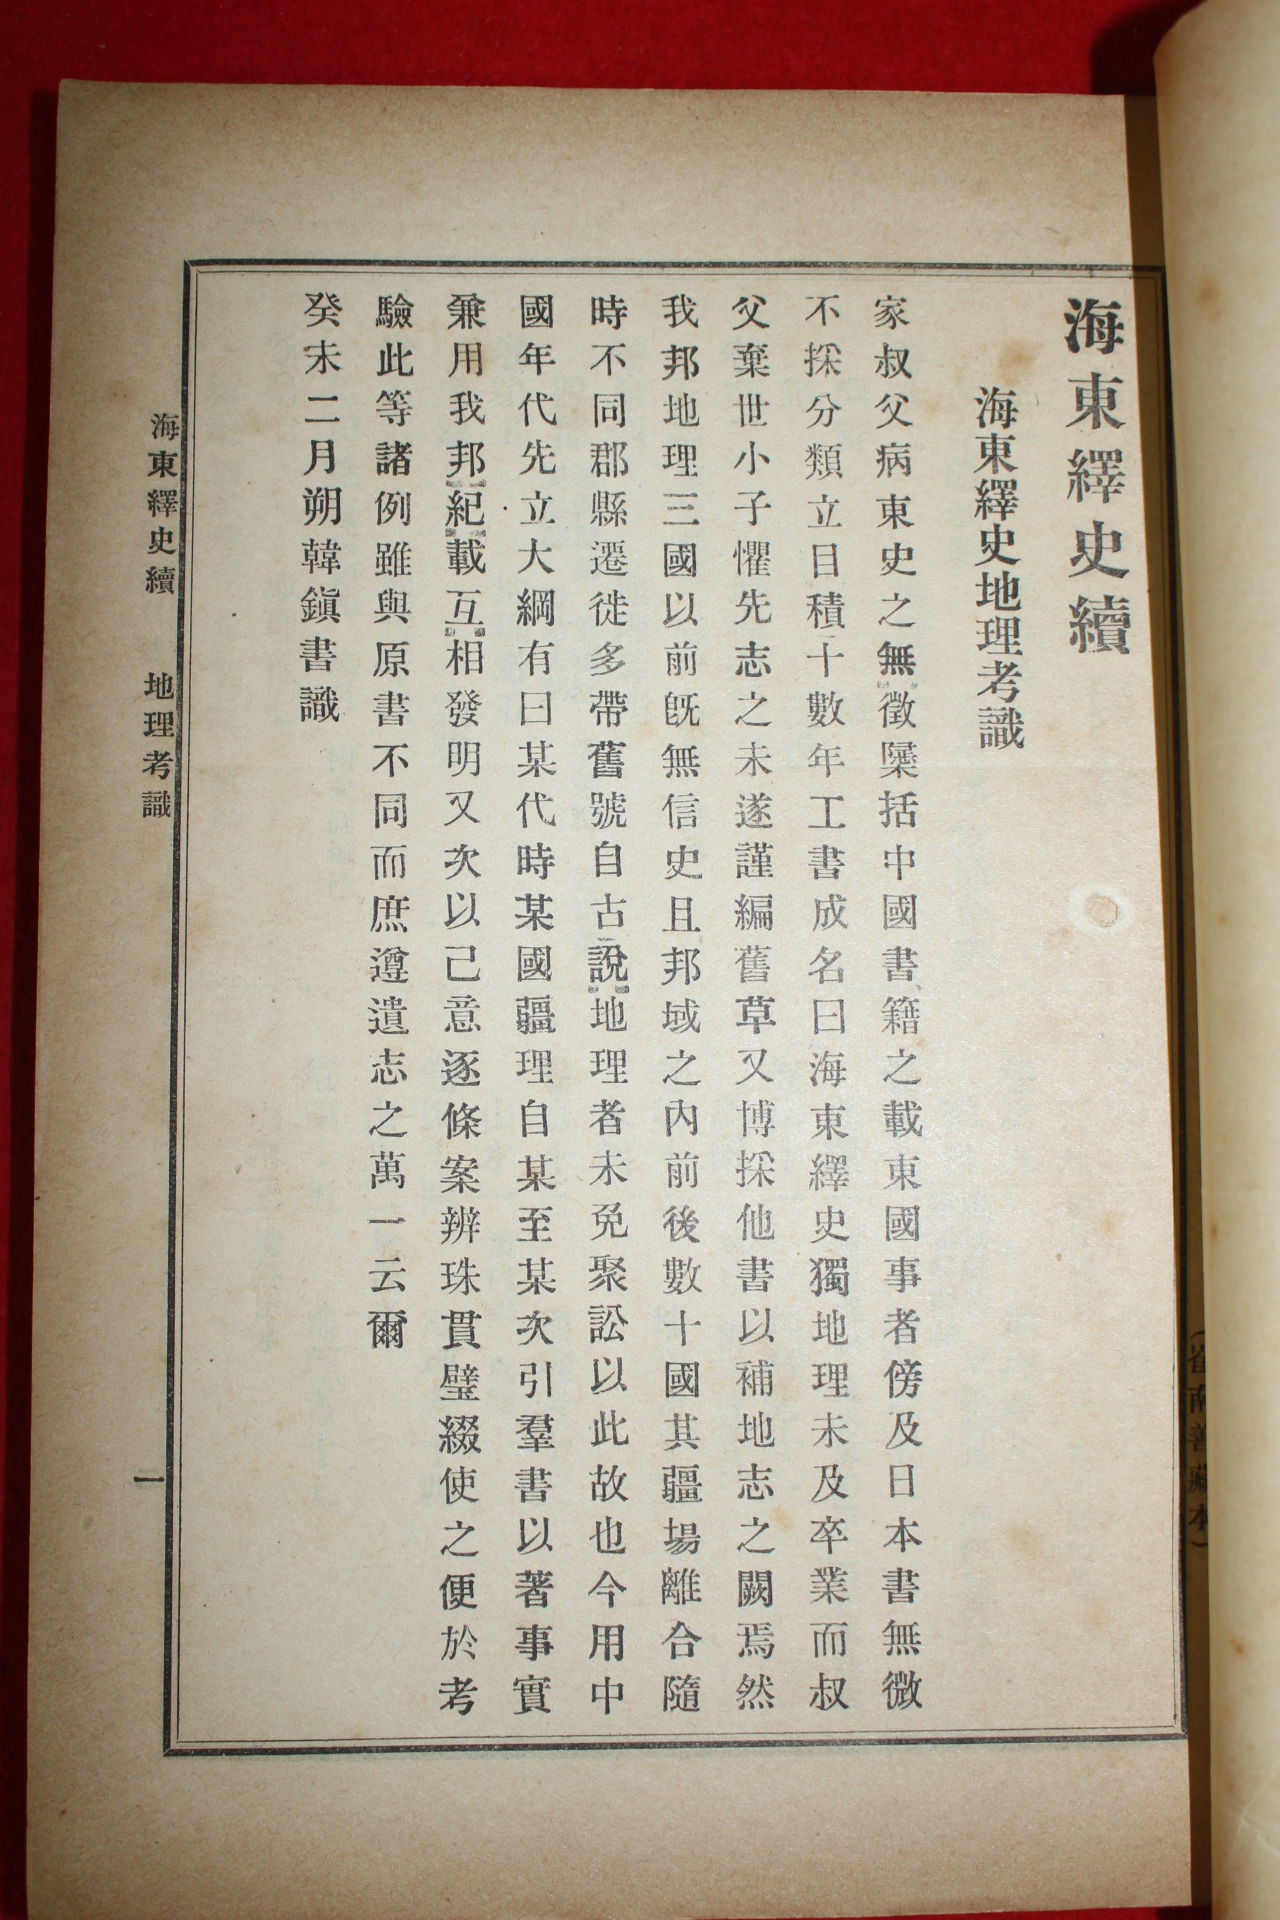 海東繹史續
海東繹史地理考識
家叔父病東史之無徵檃括中國書籍之載東國事者傍及日本書無微
不採分類立目積十數年工書成名曰海東繹史獨地理未及卒業而叔
父棄世小子懼先志之未遂謹編舊草又博採他書以補地志之闕焉然
我邦地理三國以前旣無信史且邦域之內前後數十國其疆場離合隨
時不同郡縣遷徙多帶舊號自古說地理者未免聚訟以此故也今用中
國年代先立大綱有曰某代時某國疆理自某至某次引羣書以著事實
兼用我邦紀載互相發明又次以己意逐條案辨珠貫璧綴使之便於考
驗此等諸例雖與原書不同而庶遵遺志之萬一云爾
癸未二月朔韓鎭書識
海東繹史續 地理考識 一
(崔南善藏本)